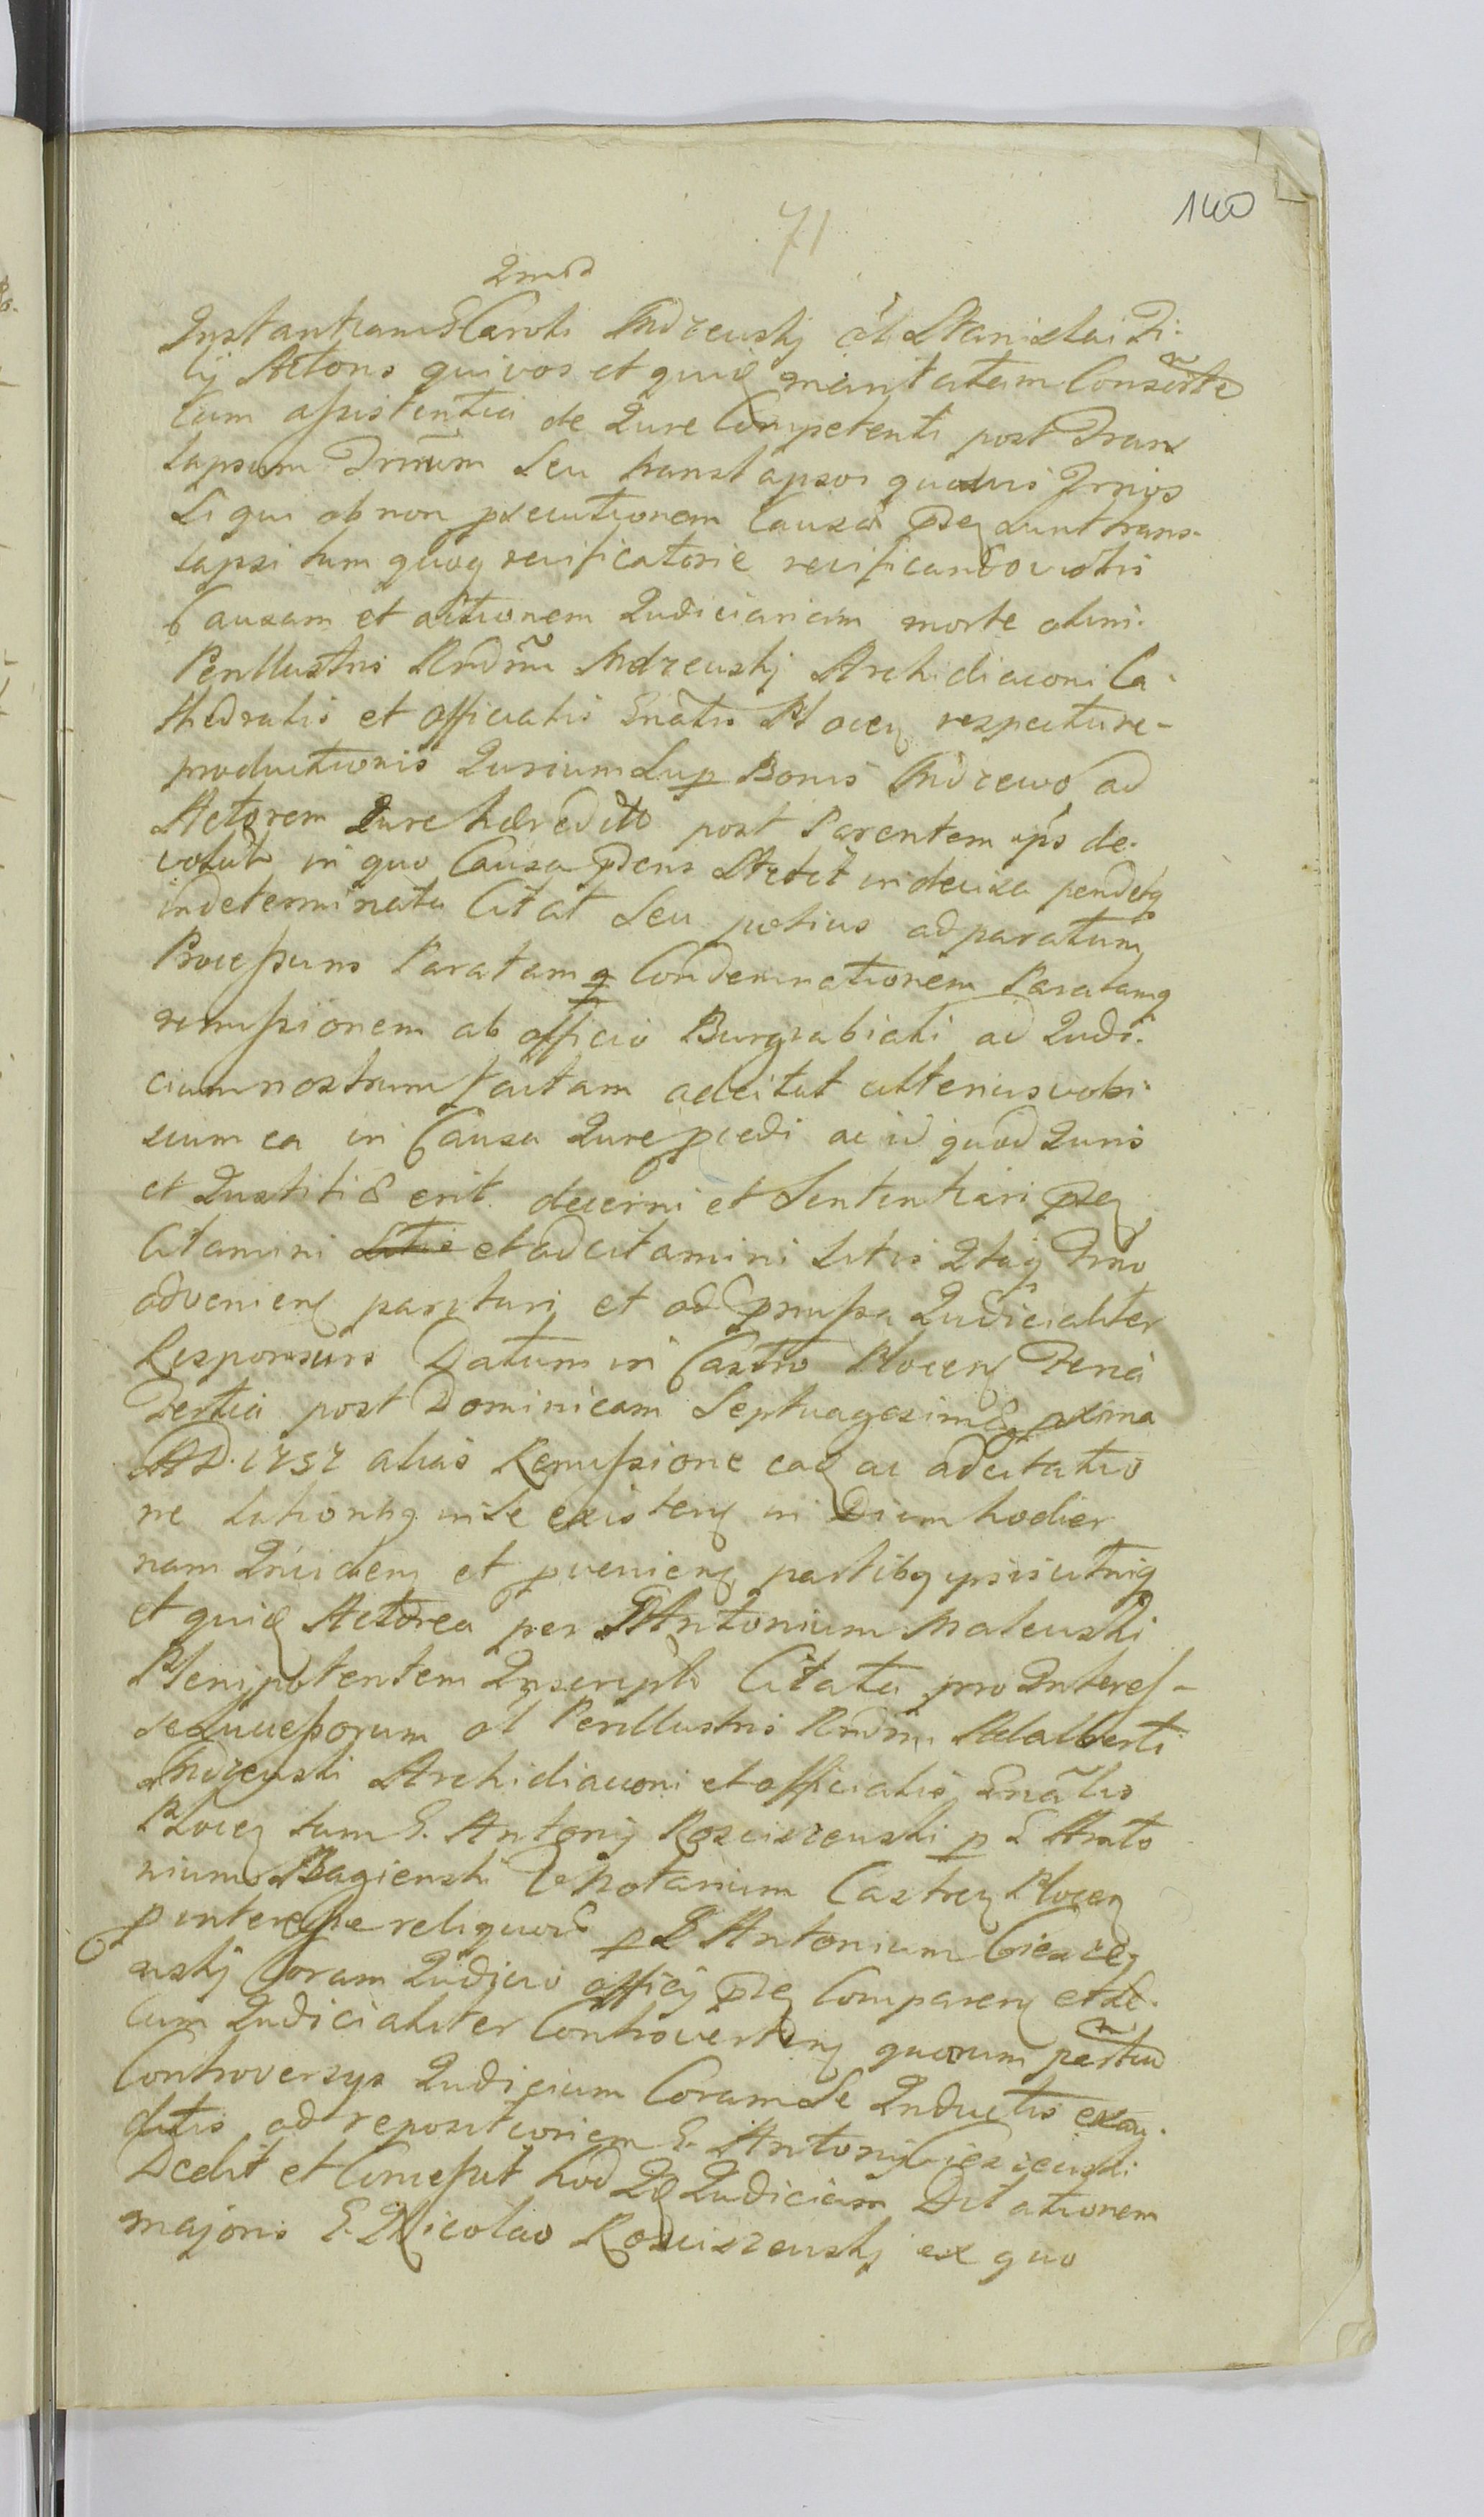 140
71
2mdo
Instantiam G Caroli Indrewskj ol Stanislai Fi:
lij Actoris qui vos et quiq mentatam Conserte
Cum assistentia de Jure Competenti post Trans
lapsum Trnum Seu translapsos quosvis Trnios
Si qui ob non psecutionem Causæ pseq sunt trans-
lapsi tum quoq reificatorie reificando vobis
Causam et actionem Judiciariam morte olim
Perillustris Rndmi Indrewskj Archidiaconi Ca:
thedralis et officialis Gnalis Plocen respectu re-
productionis Jurium Sup Bonis Indrewo ad
Actorem Jure hæredit post Parentem ips de:
volut in quo Causa psens Stetit indecisa pendetq
indeterminata Citat Seu potius ad paratum
Processum Paratamq Condemnationem Paratamq
remissionem ab officio Burgrabiali ad Judi:
cium nostrum factam adcitat ulterius vobi:
scum ea in Causa Jure pcedi ac id quod Juris
et Justitiæ erit decerni et Sententiari pseq
Citamini et adcitamini Litis Itaq Trno
advenien parituri et ad pmissa Judicialiter
Responsuri Datum in Castro Plocen Feria
Tertia post Dominicam Septuagesimæ pxima
AD. 1757 alias Remissione eaq ac adcitatio
ne in Se existen in Diem hodier
nam Inciden et pvenien partibq ipsis utrisq
et quiq Actorea per G Antonium Maleuski
Plenipotentem Inscript Citata pro Interes-
se Successorum ol Perillustris Rndmi Adalberti
Indrewski Archidiaconi et officialis Gnalis
Plocen tum G. Antonij Rosciszewski p G Anto
nium Bagienski V Notarium Castren Plocen
p interesse reliquor p G Antonium Ciesze
uskj Coram Judicio officij pseq Comparen et Se:
Cum Judicialiter Controverten quorum partiu
Controversys Judicium Coram Se Inductis exau:
ditis ad repositionem G. Antonij Cieszewski
Dedit et Concessit hod Iq Judiciam Dilationem
majoris G. Nicolao Rosciszewskj ex quo